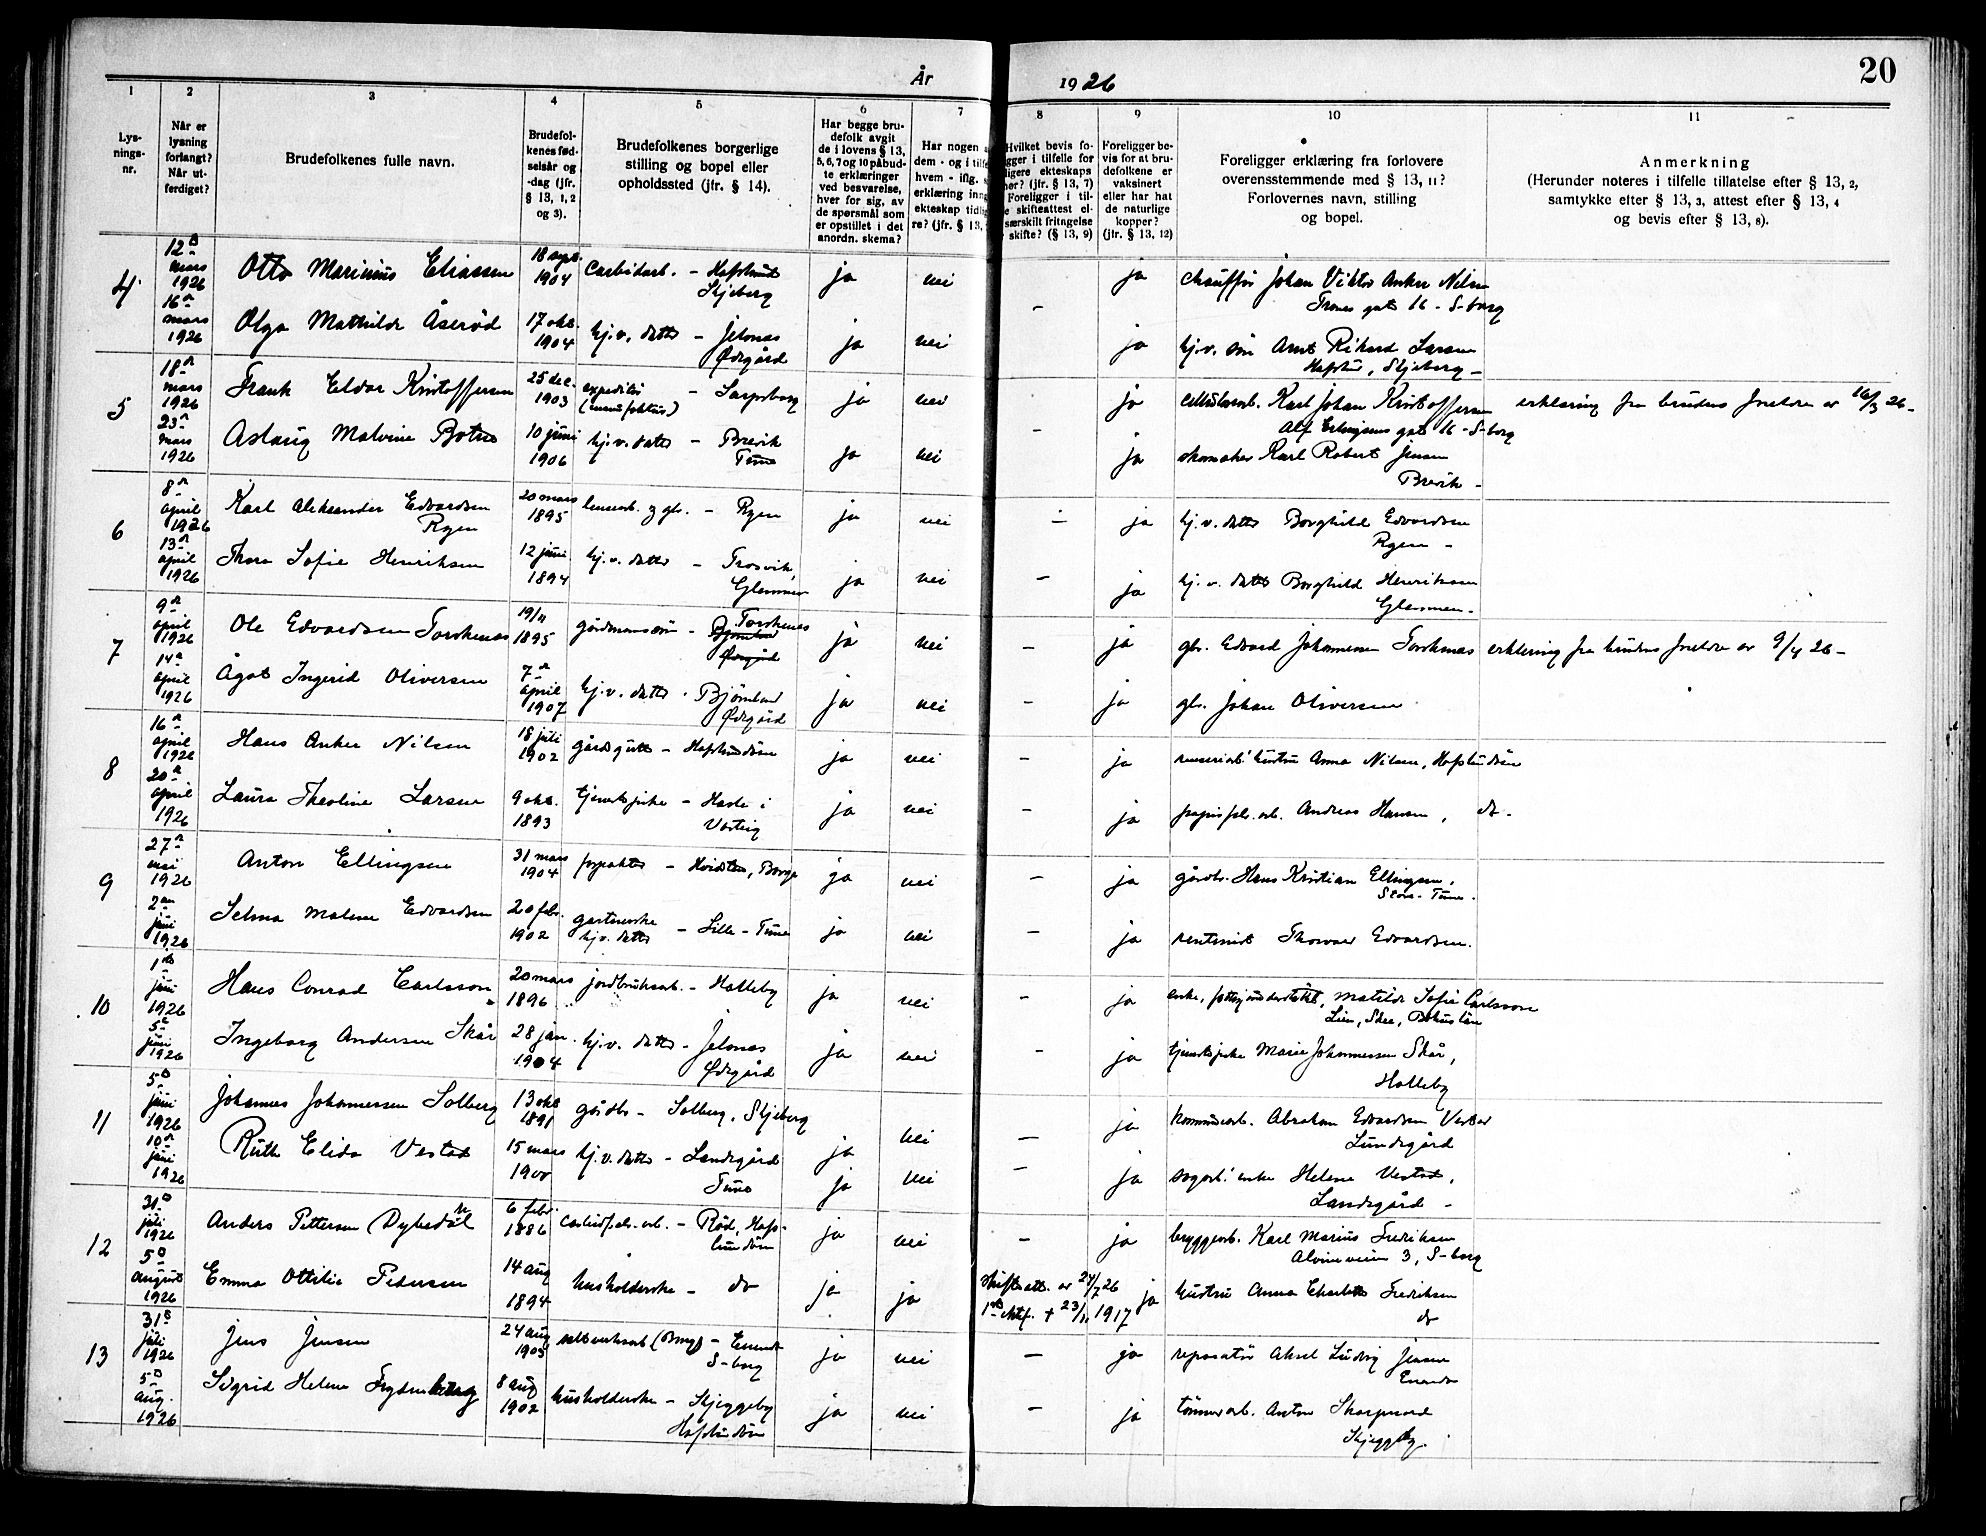 20
År 1926
1
2
3
4
5
6
7
8
9
10
11
Lys-
nings-
nr.
Når er
lysning
forlangt?
Når ut-
ferdiget?
Brudefolkenes fulle navn.
Brudefol-
kenes fød-
selsår og
-dag (jfr.
§ 13, 1, 2
og 3).
Brudefolkenes borgerlige
stilling og bopel eller
opholdssted (jfr. § 14).
Har begge bru-
defolk avgit
de i lovens § 13,
5, 6, 7 og 10 påbud-
te erklæringer
ved besvarelse,
hver for sig, av
de spørsmål som
er opstillet i det
anordn. skema?
Har nogen
dem - og i
hvem - iflg.
erklæring
ekteskap
re? (jfr. § 13,
Hvilket bevis fo-
gger i tilfelle for
ligere ekteskaps
her? (jfr. § 13, 7)
Foreligger i til-
e skifteattest el-
særskilt fritagelse
skifte? (§ 13, 9)
Foreligger be-
vis for at bru-
defolkene er
vaksinert
eller har hat
de naturlige
kopper?
(jfr. § 13, 12)
Foreligger erklæring fra forlovere
overensstemmende med § 13, 11?
Forlovernes navn, stilling
og bopel.
Anmerkning
(Herunder noteres i tilfelle tillatelse efter § 13, 2,
samtykke efter § 13, 3, attest efter § 13, 4
og bevis efter § 13, 8).
4
12
mars
1926
Otto Marinius Eliassen
18 sept.
1904
Carbidarb. - Hafslund
Skjeberg
ja
nei
ja
chauffør Johan Viktor Anker Nilsen
Trones gate 16 - S-borg
16
mars
1926
Olga Mathilde Åserød
17 okt.
1904
hj.v. datter - Jelsnes
Ødegård
ja
nei
-
ja
hj.v. søn Arnt Rikard Larsen
Hafslund, Skjeberg -
5
18
mars
1926
Frank Eldar Kristoffersen
25 dec.
1903
expeditør
(manufaktur)
- Sarpsborg
ja
nei
ja
Karl Johan Kristoffersen
Alf Erlingsens gate 16 - S-borg
erklæring fra brudens foreldre av 16/3 26 -
23
mars
1926
Aslaug Malvine Botne
10 juni
1906
hj.v. datter - Brevik
Tune
ja
nei
-
ja
skomaker Karl Robert Jensen
Brevik -
6
8
april
1926
Karl Aleksander Edvardsen
Rygen
20 mars
1895
og gb. - Rygen
ja
nei
-
ja
hj.v. datter Borghild Edvardsen
Rygen -
13
april
1926
Thora Sofie Henriksen
12 juni
1894
hj.v. datter - Trosvik,
Glemmen
ja
nei
-
ja
hj.v. datter Borghild Henriksen
Glemmen -
7
9
april
1926
Ole Edvardsen Torsknæs
19/11
1895
gårdmannssøn - Torsknæs
Bjørnland
Ødegård
ja
nei
-
ja
gbr. Edvard Johannesen Torsknæs
erklæring fra brudens foreldre av 9/4 26 -
14
april
1926
Ågot Ingerid Oliversen
7
april
1907
hj.v. datter - Bjørnland
Ødegård
ja
nei
-
ja
gbr. Johan Oliversen
8
16
april
1926
Hans Anker Nilsen
18 juli
1902
gårdsgutt - Hafslundsøen
ja
nei
-
ja
hustru Anna Nilsen, Hafslundsøen
20
april
1926
Laura Theoline Larsen
9 okt.
1893
tjenestepike - Hasle i
Varteig
ja
nei
-
ja
papirfabr.arb. Andreas Hansen, do.
9
27
mai
1926
Anton Ellingsen
31 mars
1904
forpakter - Hvidsten, Borge
ja
nei
-
ja
gårdbr. Hans Kristian Ellingsen,
Store-Tune.
2
juni
1926
Selma Malene Edvardsen
20 febr.
1902
hj.v. datter
- Lille-Tune
ja
nei
-
ja
rentenist Thorvald Edvardsen.
10
1
juni
1926
Hans Conrad Carlsson
20 mars
1896
jordbruksarb. - Hatteby
ja
nei
-
ja
enke, Matilde Sofie Carlsson
Lien, Skee, Bohuslän
5
juni
1926
Ingeborg Andersen Skår
28 jan.
1904
hj.v. datter - Jelsnes
Ødegård
ja
nei
-
ja
tjenestepike Marie Johannessen Skår,
Hatteby
11
5
juni
1926
Johannes Johannessen Solberg
13 okt
1891
gårdbr - Solberg, Skjeberg
ja
nei
-
ja
kommunearb. Abraham Edvardsen Vestad
Landsgård
10
juni
1926
Ruth Elida Vestad
15 mars
1900
hj.v. datter - Landsgård
Tune
ja
nei
-
ja
sagarb. enke Helene Vestad,
Landsgård -
12
31
juli
1926
Anders Pettersen Dybedal
6 febr.
1886
carbidfabr.arb. - Rød, Hafs-
lundsøen
ja
nei
-
ja
bryggearb. Karl Marius Fredriksen
Alvimveien 3, S-borg
5
august
1926
Emma Ottilie Pedersen
14 aug
1894
husholderske - do
ja
ja
skifteatt. av 24/7 26
1ste ektef. † 23/11 1917
ja
hustru Anna Charlotte Fredriksen
do
13
31
juli
1926
Jens Jensen
24 aug
1903
(Borg) - Enende
S-borg
ja
nei
-
ja
reparatør Aksel Ludvig Jensen
Enende
5
aug.
1926
Sigrid Helene Frydenberg
8 aug
1902
husholderske - Skjeggeby
Hafslundsøen
ja
nei
-
ja
tømmerarb. Anton Skarpnord
Skjeggeby.